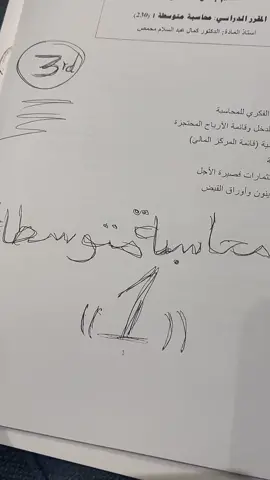 المقرر الدراسي: محاسبة متوسطة 1 (230)
استاذ المادة: الدكتور كمال عبد السلام
3rd
الفكري للمحاسبة
لدخل وقائمة الأرباح المحتجزة
(قائمة المركز المالي)
قصيرة الأجل
وأوراق القبض
محاسبة متوسطة
((1))